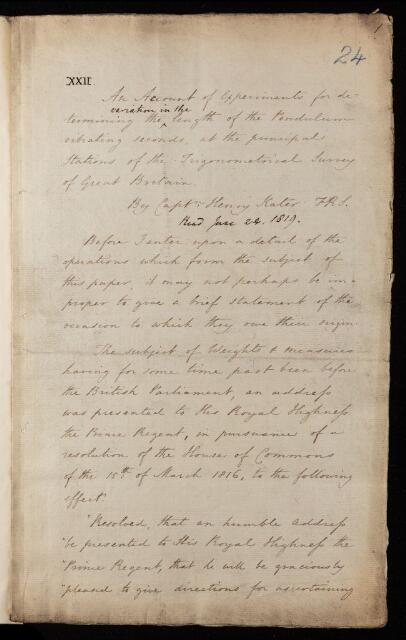 1
24
XXII
An Account of Experiments for de-
variation in the
termining the ‸ length of the Pendulum
vibrating seconds, at the principal
Stations of the Trigonometrical Survey
of Great Britain.
By Capt.n Henry Kater F.R.S.
Read June 24. 1819.
Before I enter upon a detail of the
operations which form the subject of
this paper, it may not perhaps be im=
proper to give a brief statement of the
occasion to which they owe their origin.
The subject of Weights & measures
having for some time past been before
the British Parliament, an address
was presented to His Royal Highness
the Prince Regent, in pursuance of a
resolution of the House of Commons
of the 15th of March 1816, to the following
effect.
"Resolved, that an humble address
"be presented to His Royal Highness the
"Prince Regent, that he will be graciously
"pleased to give directions for ascertaining